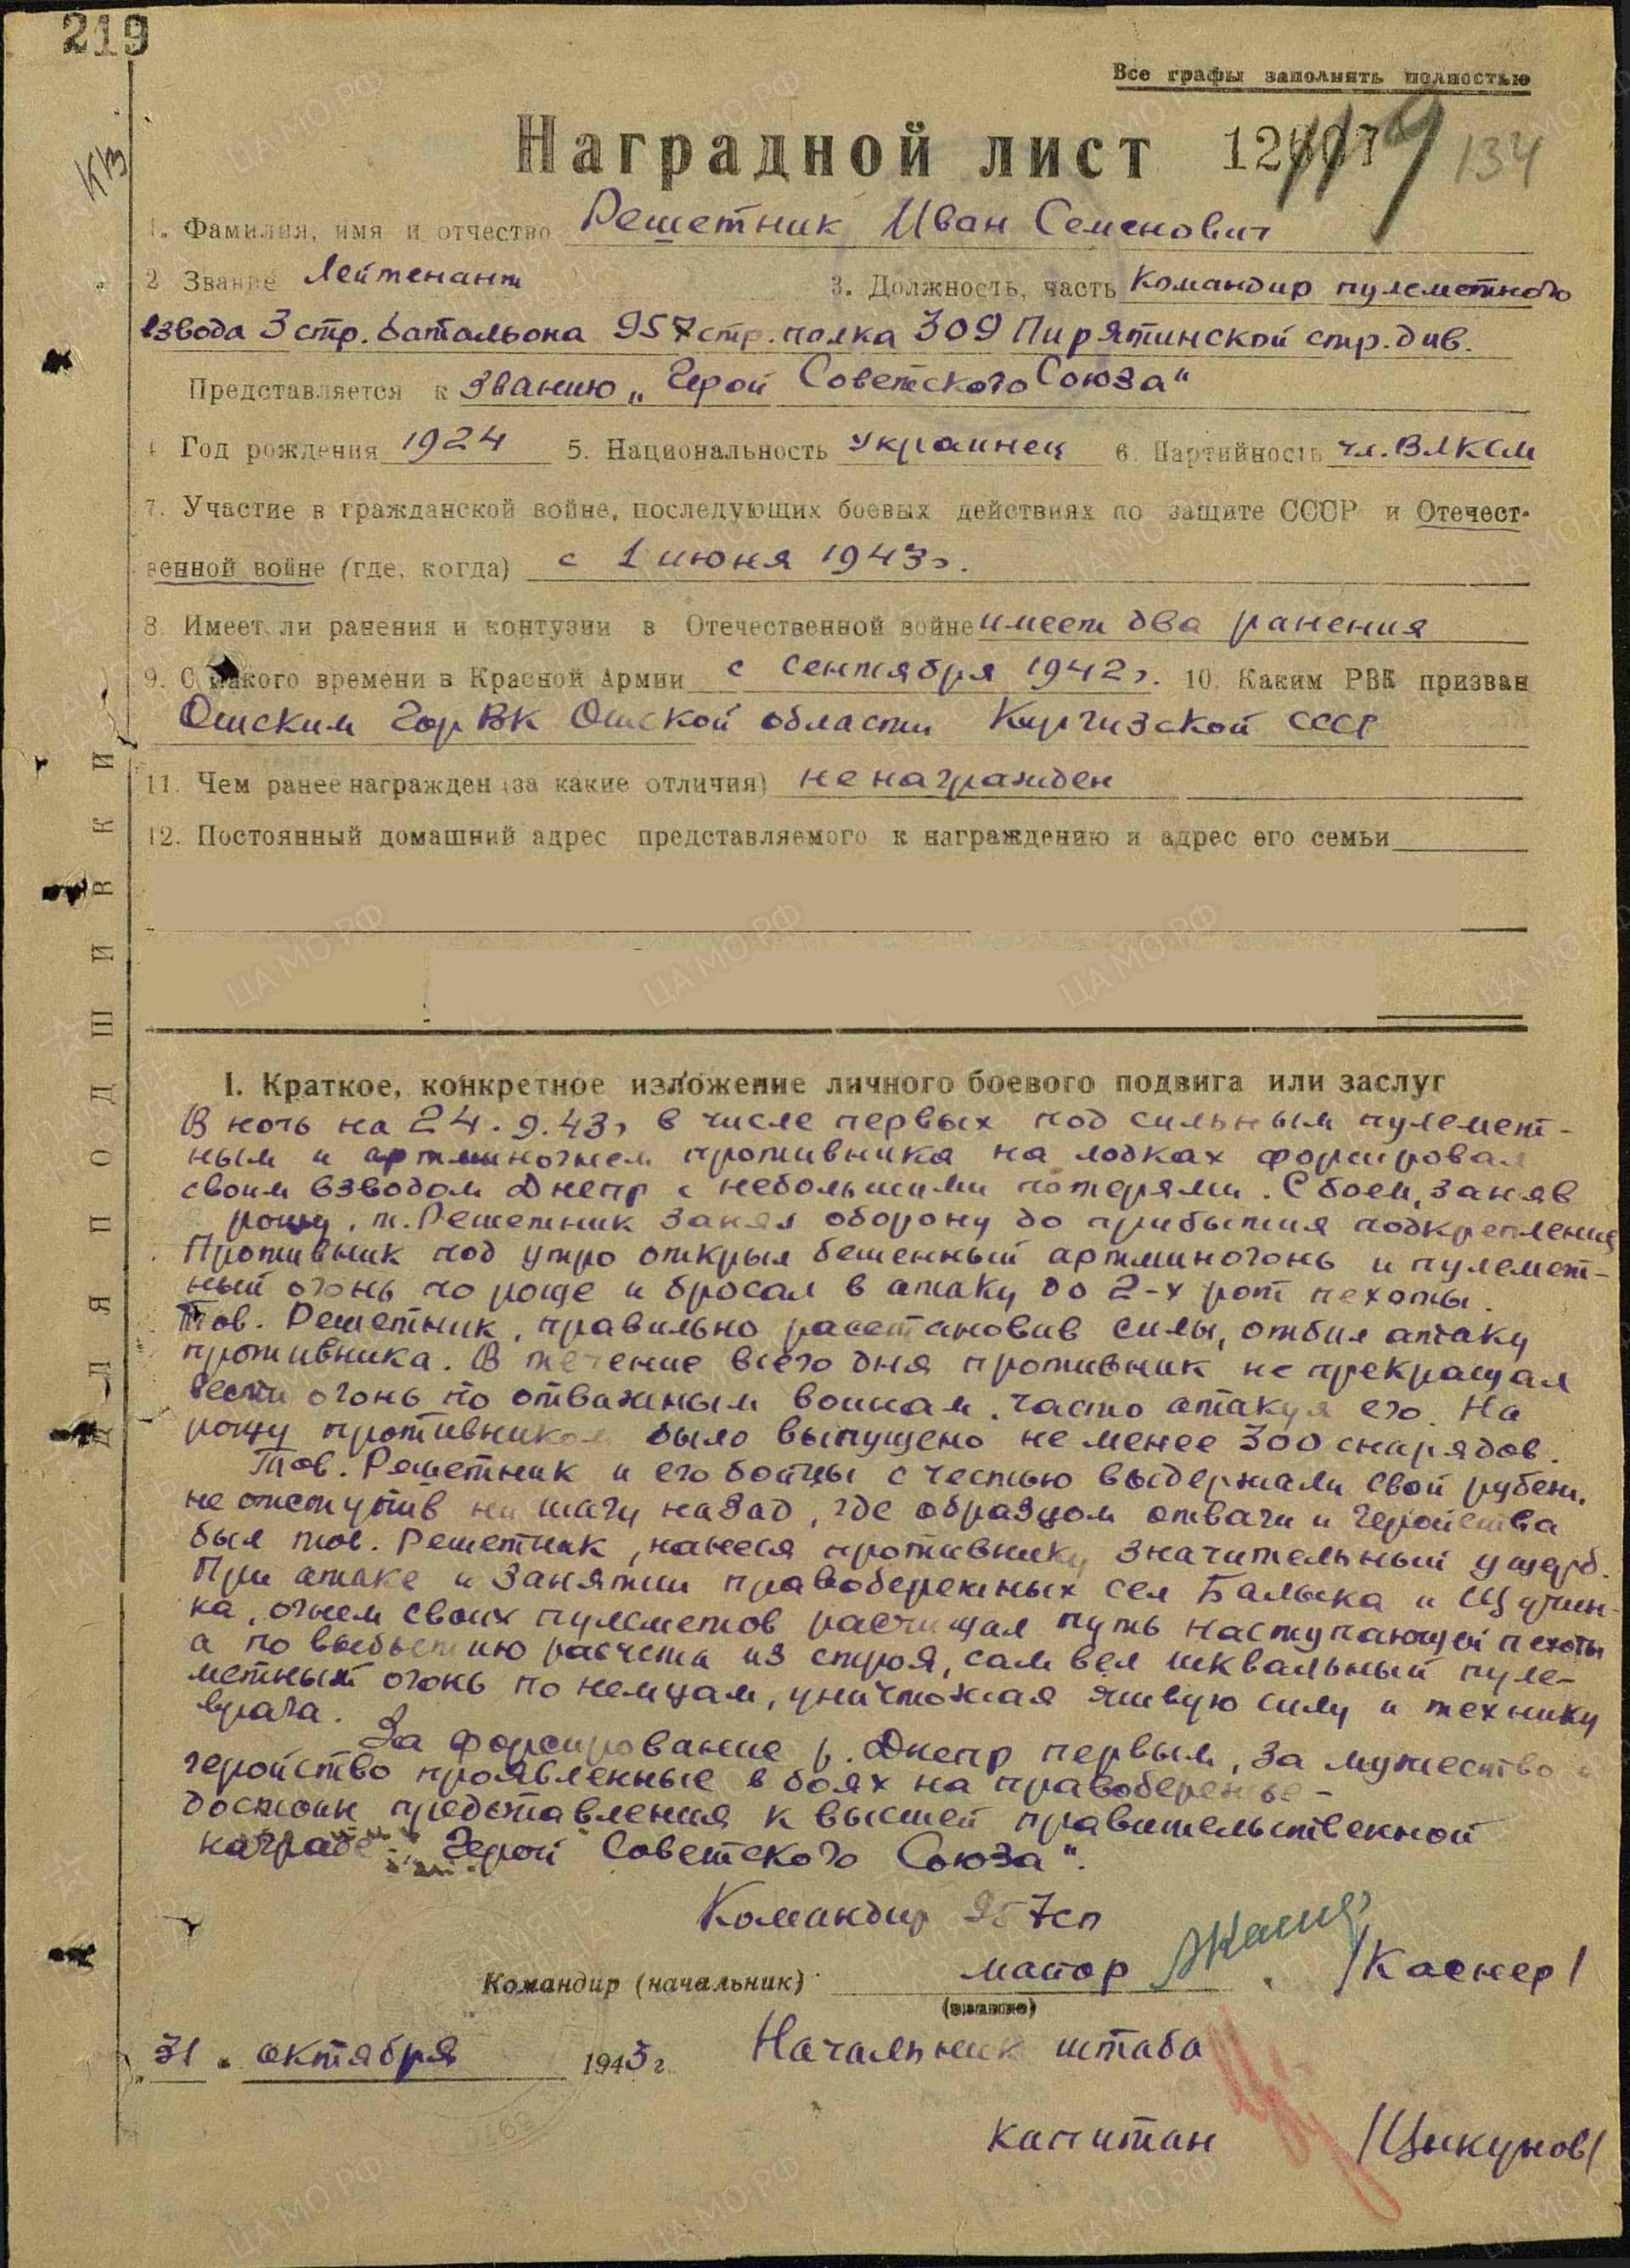 219
Все графы заполнять полностью
Наградной лист 134
КВ
1. Фамилия, имя и отчество Решетник Иван Семенович
2 Звание Лейтенант 3. Должность, часть Командир пулеметного
взвода 3 стр. батальона 957 стр. полка 309 Пирятинской стр. див.
Представляется к званию „Герой Советского Союза"
4 Год рождения 1924 5. Национальность Украинец 6. Партийность чл. ВЛКСМ
7. Участие в гражданской войне, последующих боевых действиях по защите СССР и Отечест-
венной войне (где, когда) с 1 июня 1943г.
8. Имеет ли ранения и контузии в Отечественной войне имеет два ранения
9. С какого времени в Красной Армии с сентября 1942г. 10. Каким РВК призван
Ошским ГорВК Ошской области Киргизской СССР
11. Чем ранее награжден (за какие отличия) не награжден
12. Постоянный домашний адрес представляемого к награждению и адрес его семьи
ДЛЯ ПОДШИВКИ
I. Краткое, конкретное изложение личного боевого подвига или заслуг
В ночь на 24.9.43г в числе первых под сильным пулемет-
ным и артминогнем противника на лодках форсировал
своим взводом Днепр с небольшими потерями. С боем, заняв
рощу, т. Решетник занял оборону до прибытия подкрепления
Противник под утро открыл бешенный артминогонь и пулемет-
ный огонь по роще и бросал в атаку до 2-х рот пехоты.
Тов. Решетник, правильно расстановив силы, отбил атаку
противника. В течение всего дня противник не прекращал
вести огонь по отважным воинам, часто атакуя его. На
рощу противником было выпущено не менее 300 снарядов.
Тов. Решетник и его бойцы с честью выдержали свой рубеж,
не отступив ни шагу назад, где образцом отваги и геройства
был тов. Решетник, нанеся противнику значительный ущерб.
При атаке и занятии правобережных сел Балыка и Щучин-
ка, огнем своих пулеметов расчищал путь наступающей пехоты
а по выбытию расчета из строя, сам вел шквальный пуле-
метный огонь по немцам, уничтожая живую силу и технику
врага.
За форсирование р. Днепр первым, за мужество и
геройство проявленные в боях на правобережье -
достоин представления к высшей правительственной
награде „Герой Советского Союза".
Командир 957сп
Командир (начальник) маиор /Каснер/
(звание)
„31" октября 1943г. Начальник штаба
капитан /Цикунов/
ЦА МО РФ